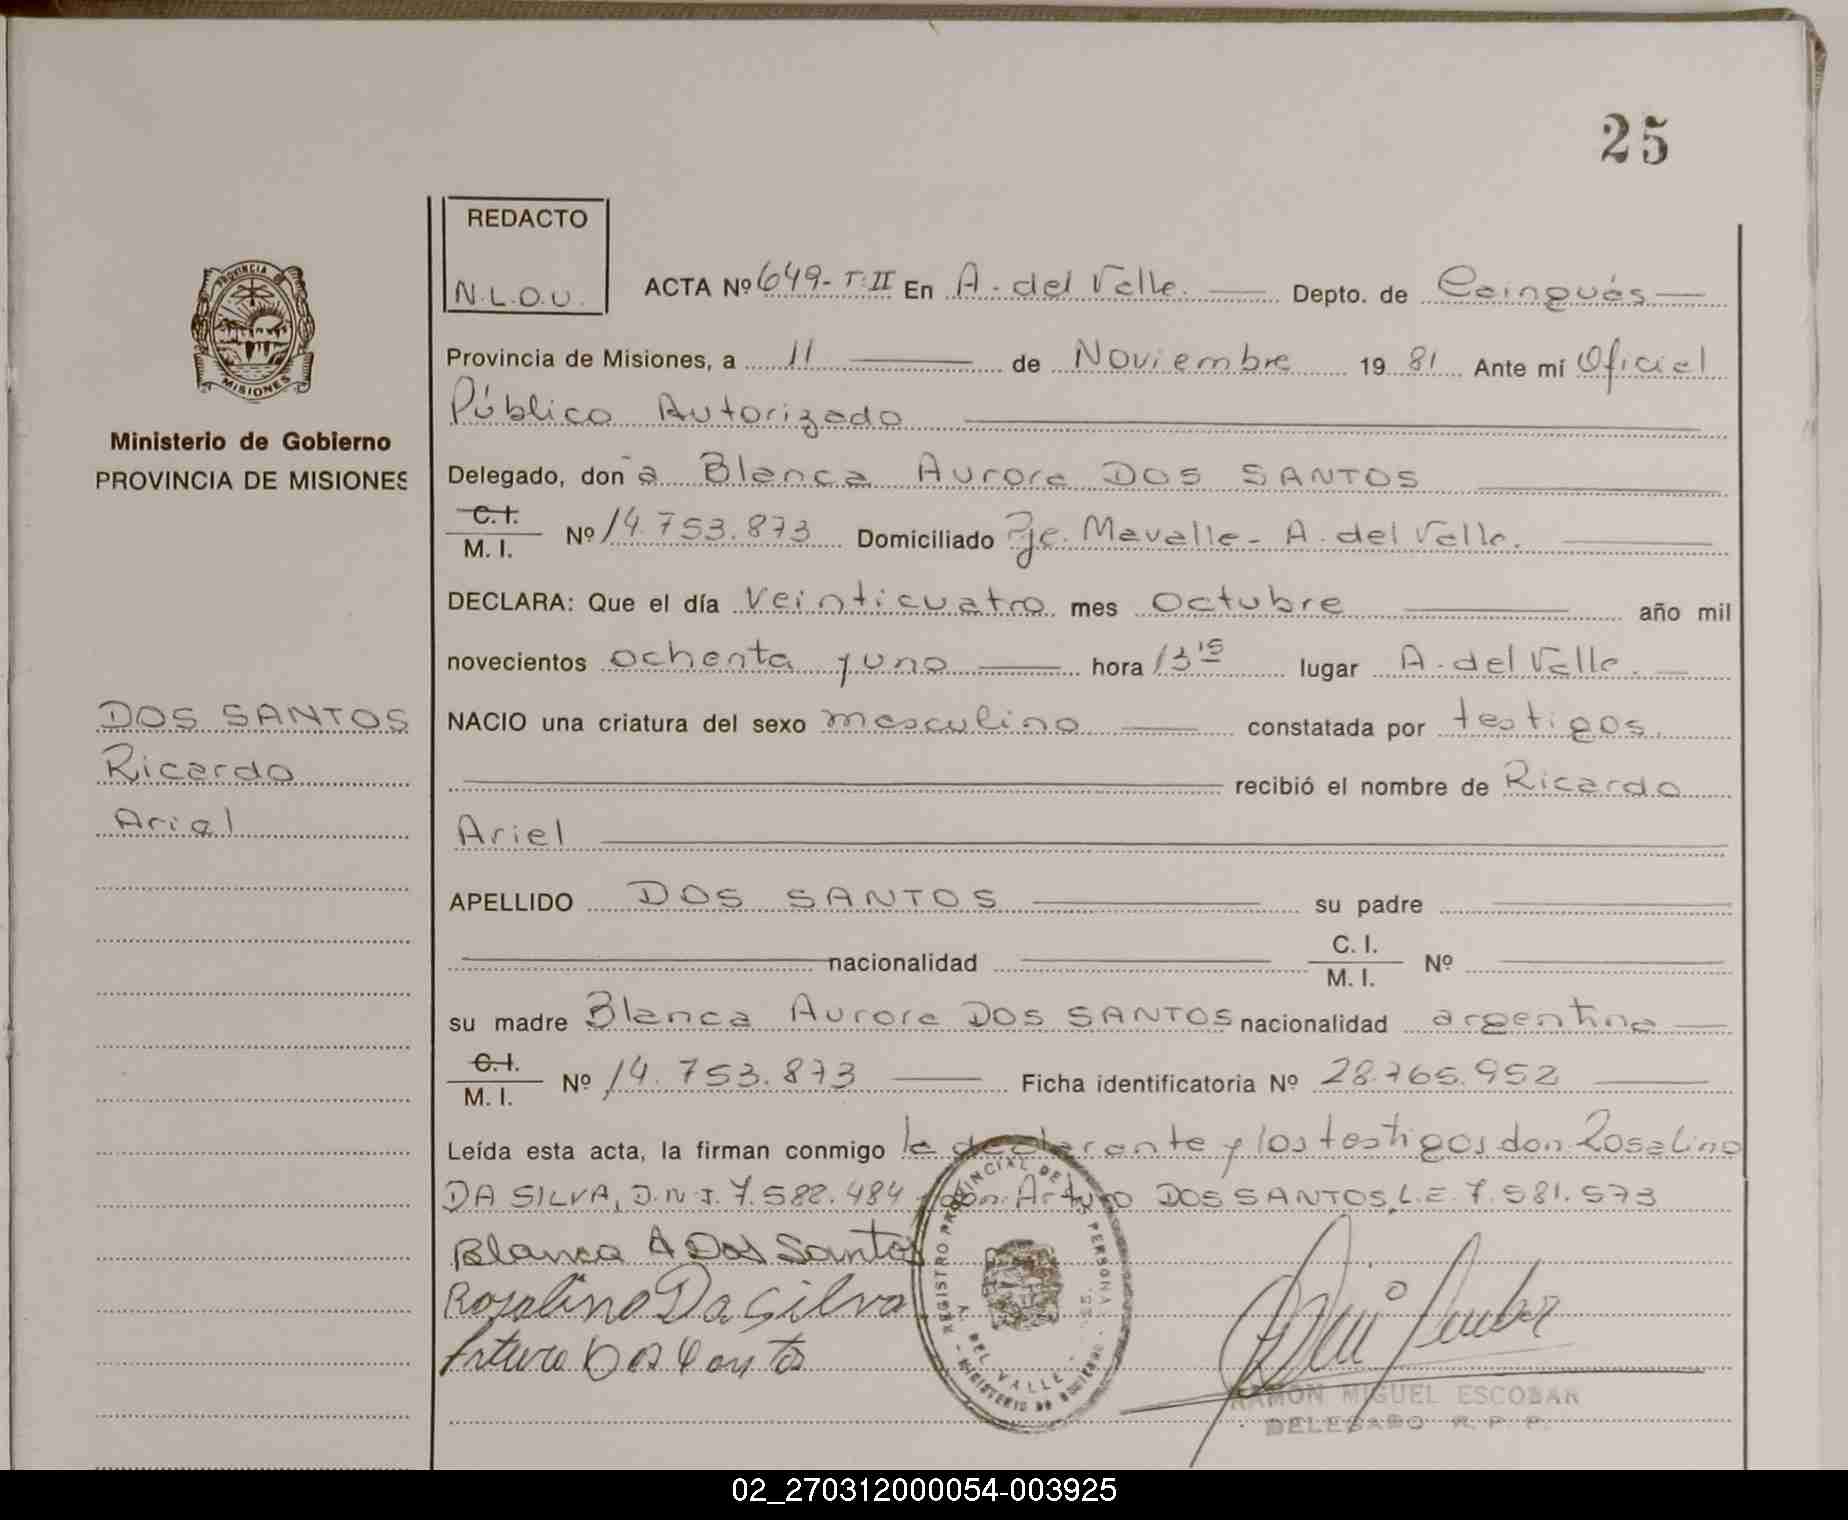 25
REDACTO
N.L.O.U.
ACTA Nº 649-T:II En A. del Valle. Depto. de Cainguás
Provincia de Misiones, a 11 de Noviembre 19 81 Ante mí Oficial
Público Autorizado
Delegado, doña Blanca Aurora DOS SANTOS
C.I.
M. I. Nº 14.753.873 Domiciliado Pje. Mavalle - A. del Valle.
DECLARA: Que el día veinticuatro mes octubre año mil
novecientos ochenta y uno hora 13 15 lugar A. del Valle.
NACIO una criatura del sexo masculino constatada por testigos.
recibió el nombre de Ricardo
Ariel
APELLIDO DOS SANTOS su padre
nacionalidad C. I.
M. I. Nº
su madre Blanca Aurora DOS SANTOS nacionalidad argentina
C.I.
M. I. Nº 14.753.873 Ficha identificatoria Nº 28.765.952
Leída esta acta, la firman conmigo la declarante y los testigos don Rosalino
DA SILVA, D.N.I. 7.582.484 y don Arturo DOS SANTOS, L.E. 7.581.573
Blanca A Dos Santos
Rosalino Da Silva
Arturo Dos Santos
REGISTRO PROVINCIAL DE LAS PERSONAS
A. DEL VALLE
MINISTERIO DE GOBIERNO
RAMON MIGUEL ESCOBAR
DELEGADO R. P. P.
PROVINCIA
MISIONES
Ministerio de Gobierno
PROVINCIA DE MISIONES
DOS SANTOS
Ricardo
Ariel
02_270312000054-003925